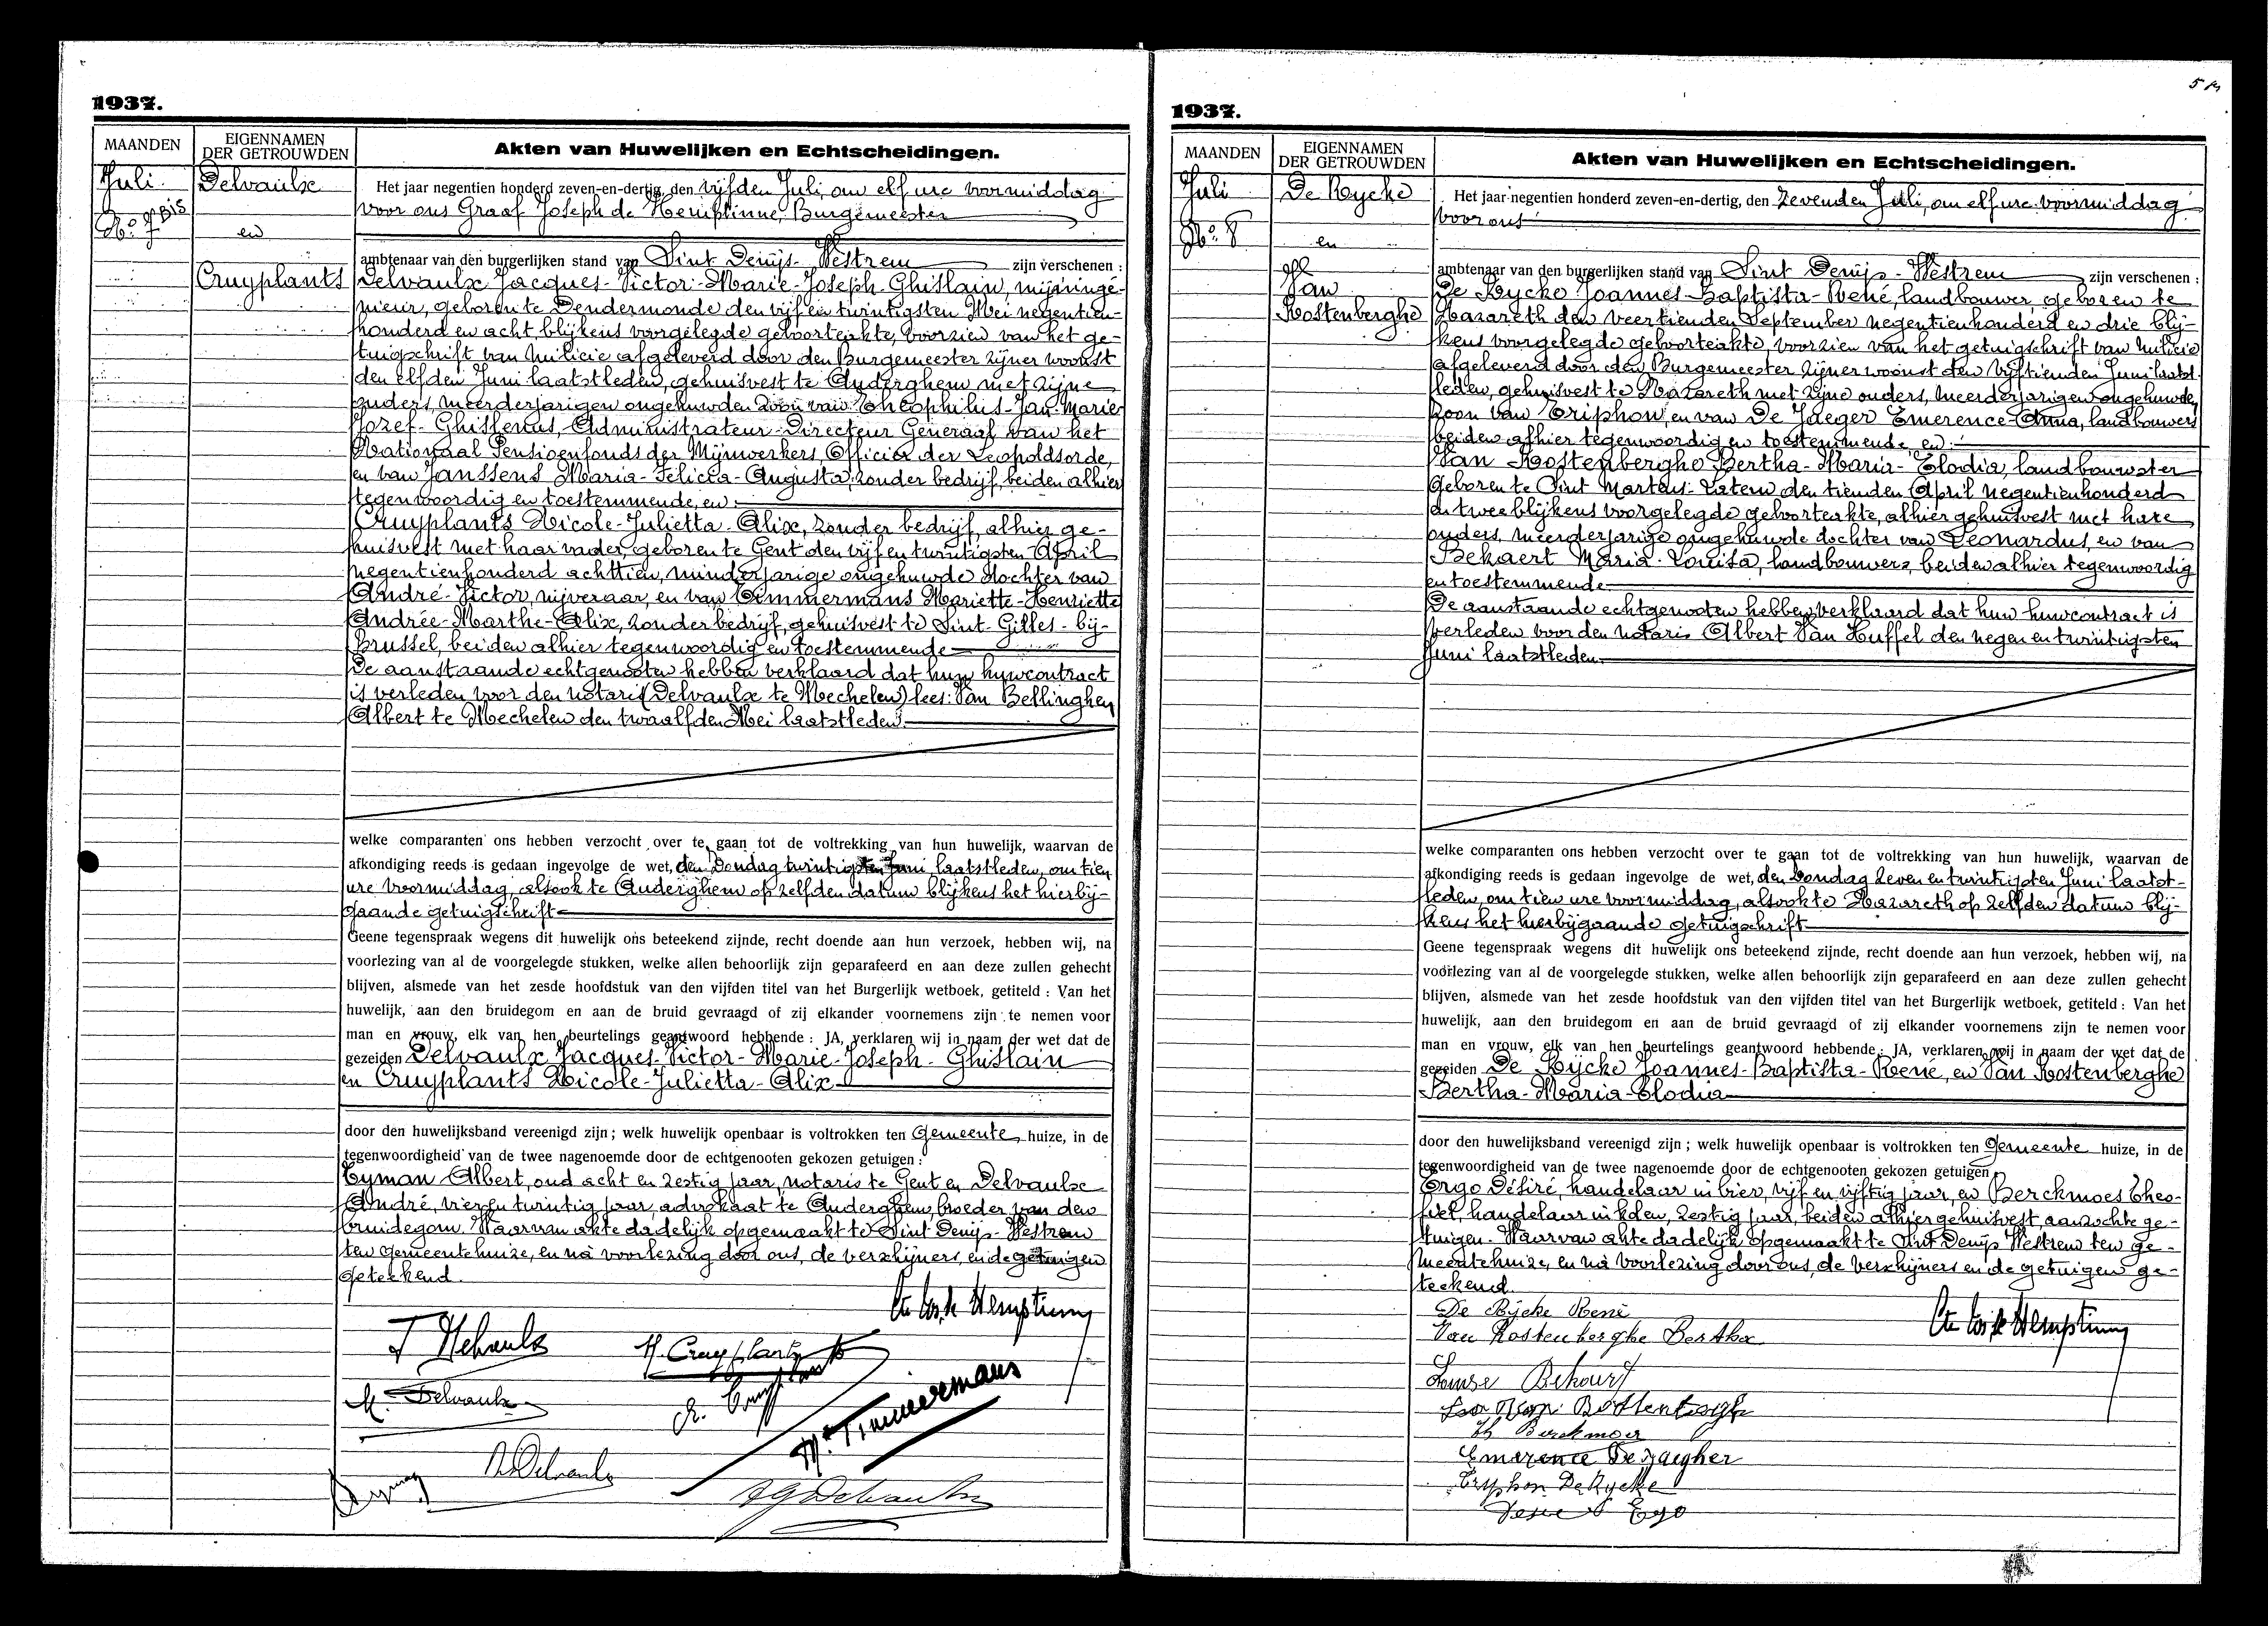 1937.
MAANDEN
EIGENNAMEN
DER GETROUWDEN
Akten van Huwelijken en Echtscheidingen.
Juli
No. 7 BIS
Delvaulx
en
Cruyplants
Het jaar negentien honderd zeven-en-dertig, den vijfden Juli, om elf ure voormiddag
voor ons Graaf Joseph de Hemptinne, Burgemeester
ambtenaar van den burgerlijken stand van Sint Denijs-Westrem zijn verschenen :
Delvaulx Jacques-Victor-Marie-Joseph-Ghislain, mijningé-
nieur, geboren te Dendermonde den vijf en twintigsten Mei negentien-
honderd en acht, blijkens voorgelegde geboorteakte, voorzien van het ge-
tuigschrift van milicie afgeleverd door den Burgemeester zijner woonst
den elfden Juni laatstleden, gehuisvest te Auderghem met zijne
ouders, meerderjarigen ongehuwden zoon van Theophilus-Jan-Marie
Jozef-Ghislenus, Administrateur-Directeur Generaal van het
Nationaal Pensioenfonds der Mijnwerkers, Officier der Leopoldsorde,
en van Janssens Maria-Felicia-Augusta, zonder bedrijf, beiden alhier
tegenwoordig en toestemmende, en
Cruyplants Nicole-Julietta-Alix, zonder bedrijf, alhier ge-
huisvest met haar vader, geboren te Gent den vijf en twintigsten April
negentienhonderd achttien, minderjarige ongehuwde dochter van
André-Victor, nijveraar, en van Timmermans Mariette-Henriette
Andrée-Marthe-Alix, zonder bedrijf, gehuisvest te Sint-Gilles-bij-
Brussel, beiden alhier tegenwoordig en toestemmende
De aanstaande echtgenooten hebben verklaard dat hun huwcontract
is verleden voor den notaris (Delvaulx te Mechelen) lees: Van Bellinghen
Albert te Mechelen den twaalfden Mei laatstleden.
welke comparanten ons hebben verzocht over te gaan tot de voltrekking van hun huwelijk, waarvan de
afkondiging reeds is gedaan ingevolge de wet, den Zondag twintigsten Juni laatstleden, om tien
ure voormiddag, alsook te Auderghem op zelfden datum blijkens het hierbij-
gaande getuigschrift
Geene tegenspraak wegens dit huwelijk ons beteekend zijnde, recht doende aan hun verzoek, hebben wij, na
voorlezing van al de voorgelegde stukken, welke allen behoorlijk zijn geparafeerd en aan deze zullen gehecht
blijven, alsmede van het zesde hoofdstuk van den vijfden titel van het Burgerlijk wetboek, getiteld : Van het
huwelijk, aan den bruidegom en aan de bruid gevraagd of zij elkander voornemens zijn te nemen voor
man en vrouw, elk van hen beurtelings geantwoord hebbende : JA, verklaren wij in naam der wet dat de
gezeiden Delvaulx Jacques-Victor-Marie-Joseph-Ghislain
en Cruyplants Nicole-Julietta-Alix
door den huwelijksband vereenigd zijn ; welk huwelijk openbaar is voltrokken ten Gemeente huize, in de
tegenwoordigheid van de twee nagenoemde door de echtgenooten gekozen getuigen :
Eyman Albert, oud acht en zestig jaar, notaris te Gent en Delvaulx
André, vier en twintig jaar, advokaat te Auderghem, broeder van den
bruidegom. Waarvan akte dadelijk opgemaakt te Sint Denijs-Westrem
ten gemeentehuize, en na voorlezing door ons, de verschijners, en de getuigen
geteekend.
Cte Jos. de Hemptinne
J Delvaulx
N. Cruyplants
M. Delvaulx
A. Cruyplants
M. Timmermans
Eyman
A. Delvaulx
1937.
MAANDEN
EIGENNAMEN
DER GETROUWDEN
Akten van Huwelijken en Echtscheidingen.
Juli
No. 8
De Rycke
en
Van
Rostenberghe
Het jaar negentien honderd zeven-en-dertig, den zevenden Juli, om elf ure voormiddag
voor ons
ambtenaar van den burgerlijken stand van Sint Denijs-Westrem zijn verschenen :
De Rycke Joannes-Baptista-René, landbouwer, geboren te
Nazareth den veertienden September negentienhonderd en drie blij-
kens voorgelegde geboorteakte, voorzien van het getuigschrift van milicie
afgeleverd door den Burgemeester zijner woonst den vijftienden Juni laatst-
leden, gehuisvest te Nazareth met zijne ouders, meerderjarigen ongehuwden
zoon van Triphon, en van De Jaeger Emerence-Anna, landbouwers
beiden alhier tegenwoordig en toestemmende, en:
Van Rostenberghe Bertha-Maria-Elodia, landbouwster
geboren te Sint Martens-Latem den tienden April negentienhonderd
en twee blijkens voorgelegde geboorteakte, alhier gehuisvest met hare
ouders, meerderjarige ongehuwde dochter van Leonardus, en van
Bekaert Maria-Louisa, landbouwers, beiden alhier tegenwoordig
en toestemmende
De aanstaande echtgenooten hebben verklaard dat hun huwcontract is
verleden voor den notaris Albert Van Huffel den negen en twintigsten
Juni laatstleden.
welke comparanten ons hebben verzocht over te gaan tot de voltrekking van hun huwelijk, waarvan de
afkondiging reeds is gedaan ingevolge de wet, den Zondag zeven en twintigsten Juni laatst-
leden, om tien ure voormiddag, alsook te Nazareth op zelfden datum blij-
kens het hierbijgaande getuigschrift
Geene tegenspraak wegens dit huwelijk ons beteekend zijnde, recht doende aan hun verzoek, hebben wij, na
voorlezing van al de voorgelegde stukken, welke allen behoorlijk zijn geparafeerd en aan deze zullen gehecht
blijven, alsmede van het zesde hoofdstuk van den vijfden titel van het Burgerlijk wetboek, getiteld : Van het
huwelijk, aan den bruidegom en aan de bruid gevraagd of zij elkander voornemens zijn te nemen voor
man en vrouw, elk van hen beurtelings geantwoord hebbende : JA, verklaren wij in naam der wet dat de
gezeiden De Rycke Joannes-Baptista-René, en Van Rostenberghe
Bertha-Maria-Elodia
door den huwelijksband vereenigd zijn ; welk huwelijk openbaar is voltrokken ten gemeente huize, in de
tegenwoordigheid van de twee nagenoemde door de echtgenooten gekozen getuigen
Ergo Désiré, handelaar in bier, vijf en vijftig jaar, en Berckmoes Theo-
fiel, handelaar in kolen, zestig jaar, beiden alhier gehuisvest, aanzochte ge-
tuigen. Waarvan akte dadelijk opgemaakt te Sint Denijs Westrem ten ge-
meentehuize, en na voorlezing door ons, de verschijners en de getuigen ge-
teekend.
De Rycke René
Van Rostenberghe Bertha
Cte Jos de Hemptinne
Louise Bekaert
Th Berckmoes
Emerence De Jaegher
Tryphon De Rycke